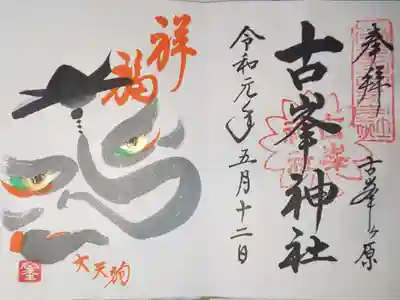 奉拝
古峯ヶ原
古峯神社
令和元年五月十二日
祥福
大天狗